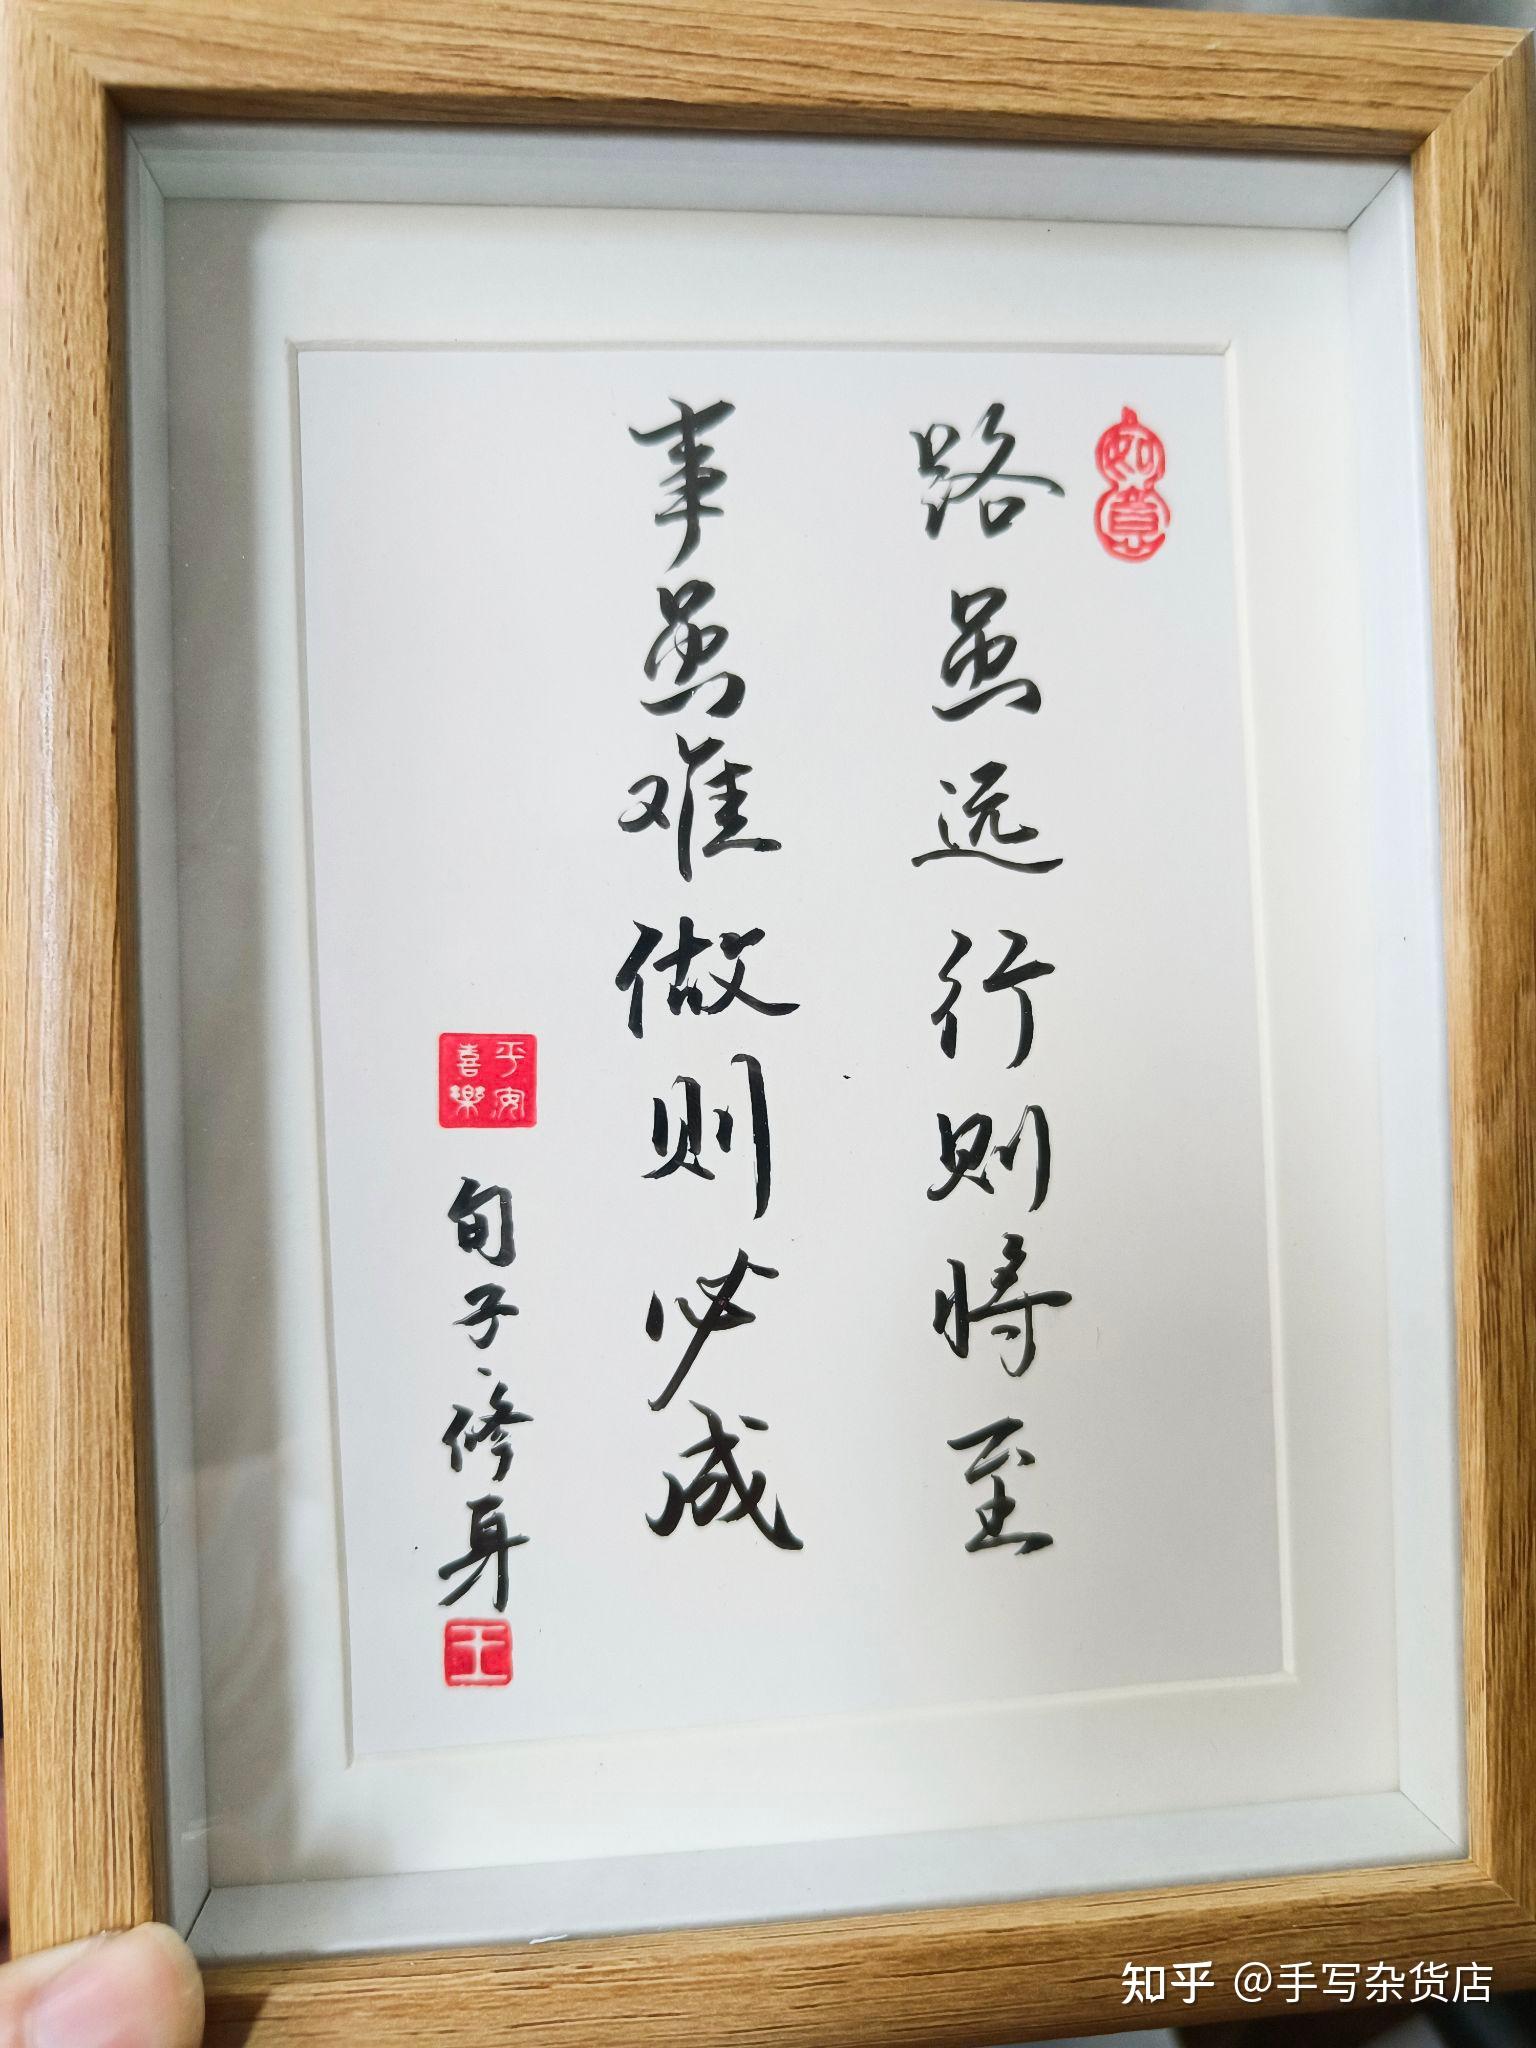 如意
路虽远行则将至
事虽难做则必成
平安喜樂
旬子、修身
王
知乎 @手写杂货店